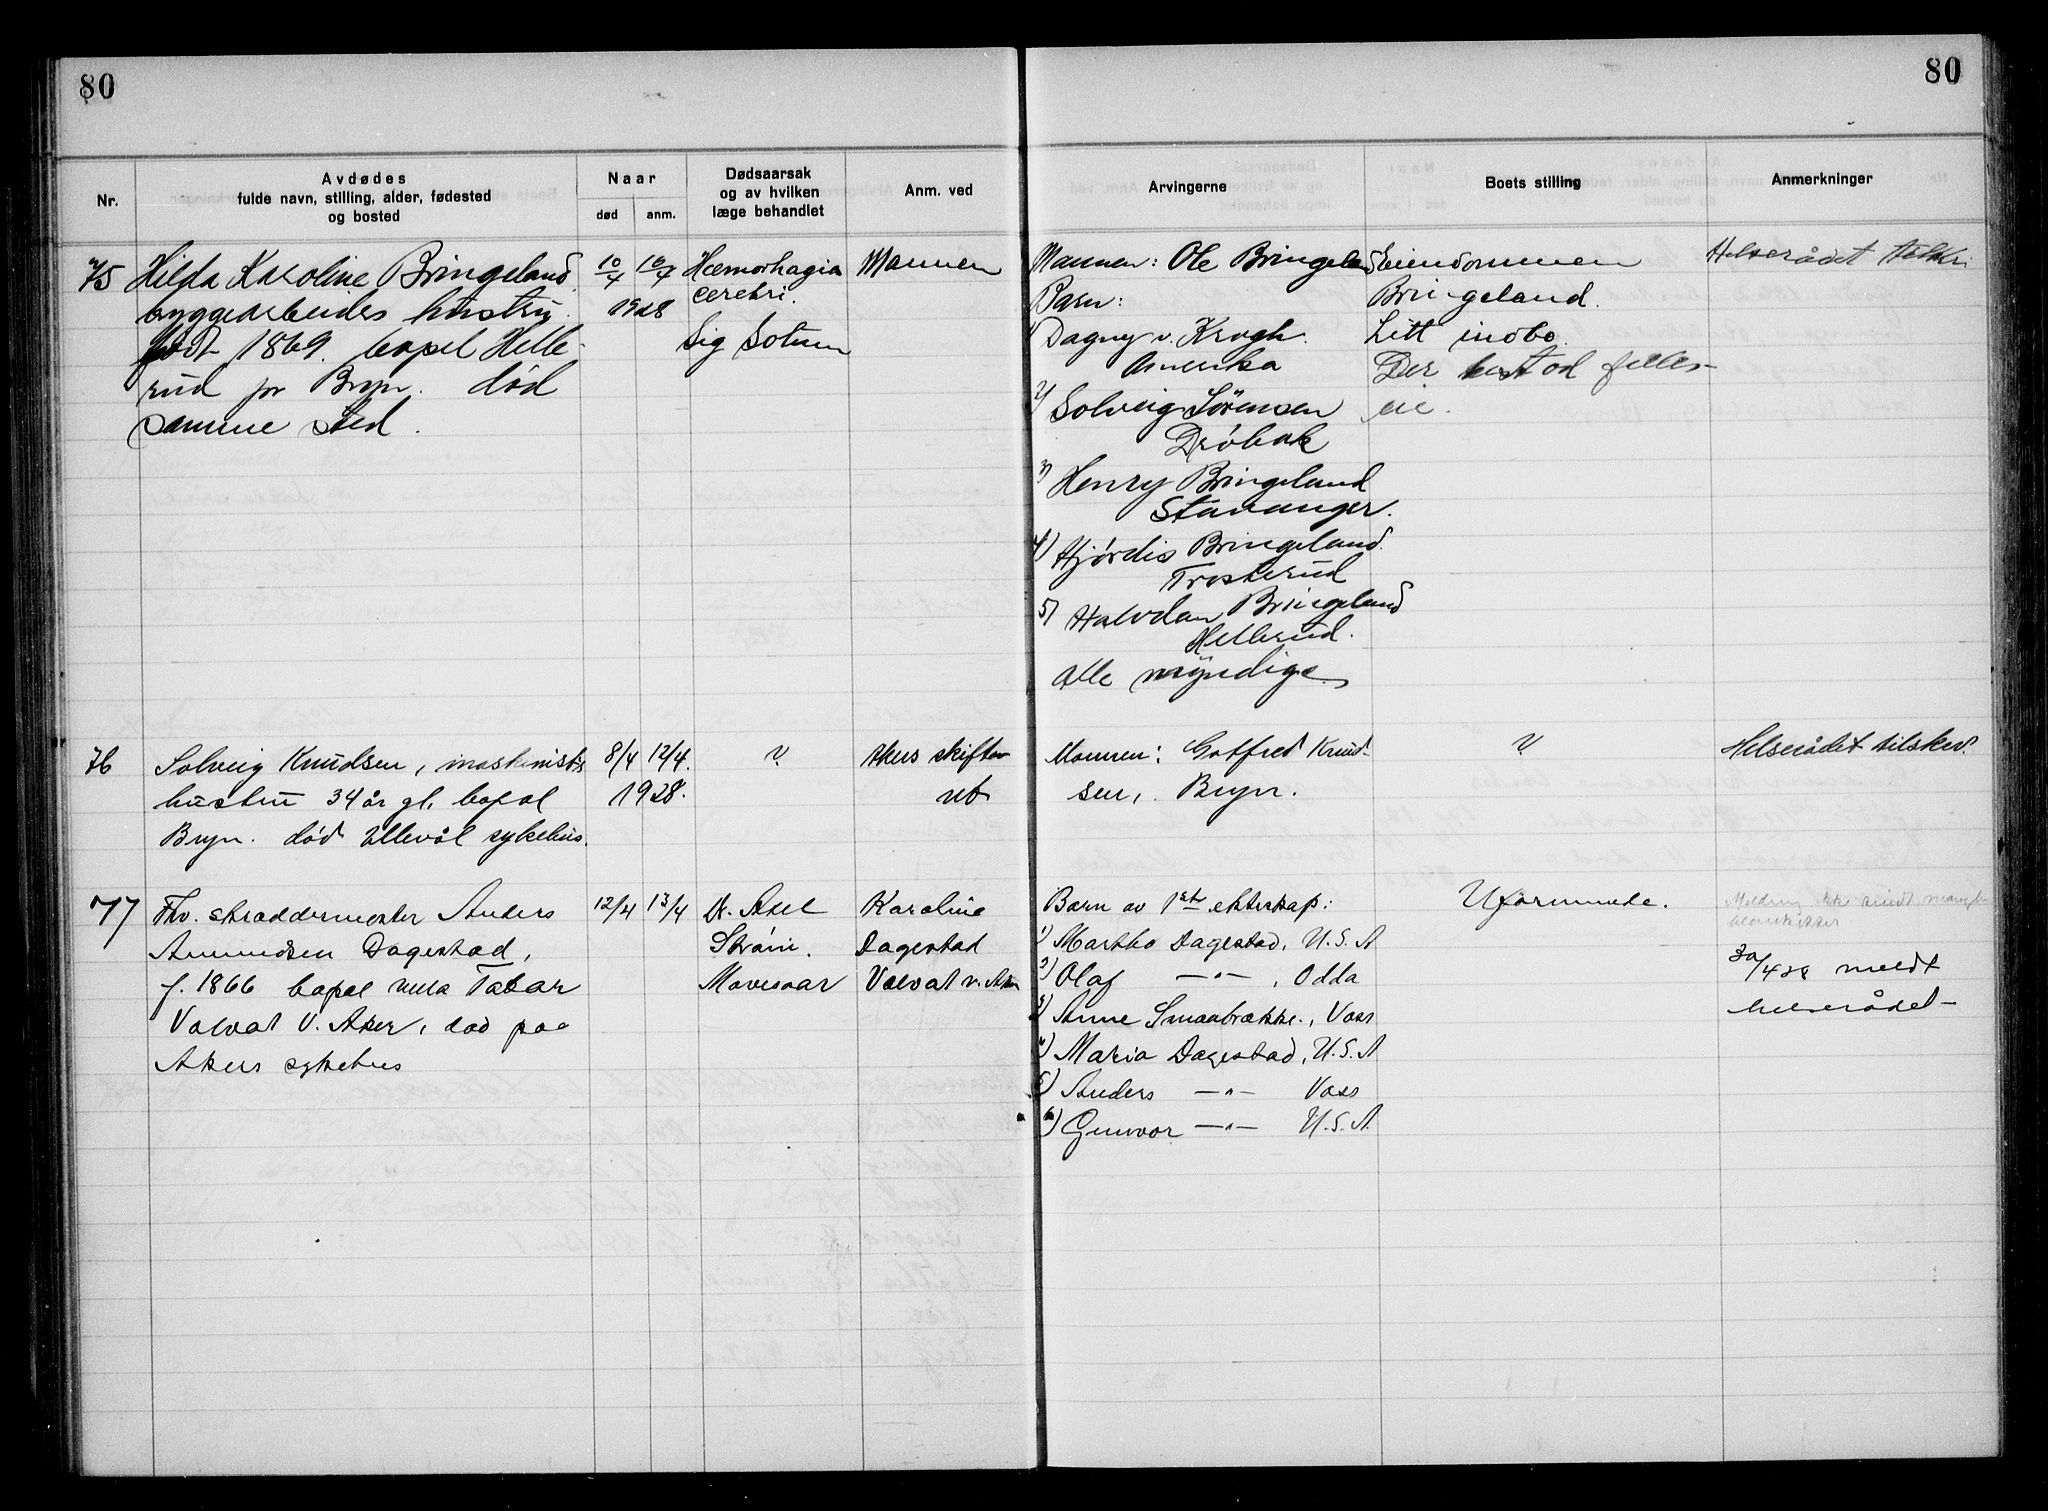 80
80
Nr.
Avdødes
fulde navn, stilling, alder, fødested
og bosted
Naar
død
anm.
Dødsaarsak
og av hvilken
læge behandlet
Anm. ved
Arvingerne
Boets stilling
Anmerkninger
75
Hilda Karoline Bringeland
byggearbeiders hustru
født 1869. bopel Helle-
rud pr Bryn. død
samme sted.
10/4
16/4
1928
Hæmorhagia
cerebri.
Sig
Mannen
Mannen: Ole Bringeland
Barn:
1) Dagny v. Krogh.
Amerika
2) Solveig Sörensen
Dröbak
3) Henry Bringeland
Stavanger.
4) Hjördis Bringeland.
Trosterud
5) Halvdan Bringeland
Hellerud.
Alle myndige
Eiendommen
Bringeland.
Litt indbo.
Der bestod felles-
eie.
Helserådet tilskr.
76
Solveig Knudsen, maskinists
hustru 34 år gl. bopel
Bryn. död Ullevål sykehus.
8/4 12/4.
1928.
?
Akers skifte-
ret
Mannen: Gotfred Knud-
sen, Bryn.
?
Helserådet tilskrev.
77
Fhv. skræddermester Anders
Amundsen Dagestad,
f. 1866 bopel villa Tabor
Valvat V. Aker, død paa
Akers sykehus
12/4 13/4
Dr. Axel
Strøm.
Karoline
Dagestad
Valvat v. Aker
Barn av 1ste ekteskap:
1) Martha Dagestad, U.S.A
2) Olaf —"— , Odda
3) Anne Smaabrække, Voss
4) Maria Dagestad, U.S.A
5) Anders —"— Voss
6) Gunvor —"— U.S.A.
Uformuede.
30/4 28 meldt
helserådet